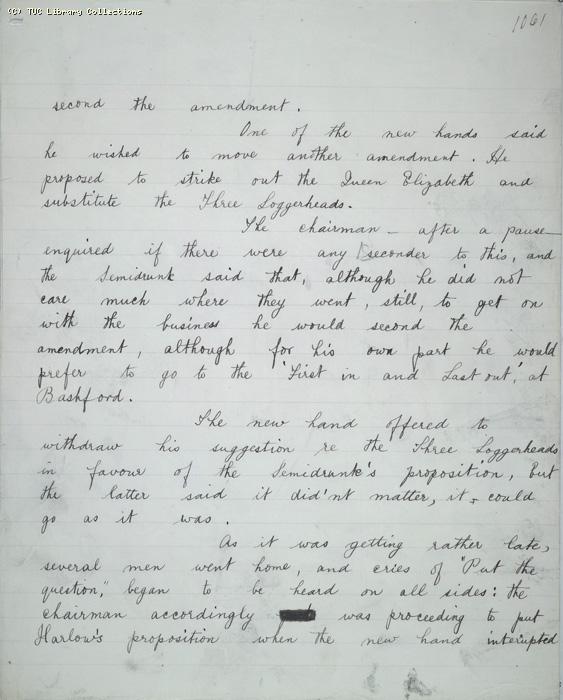 (C) TUC Library Collections
1061
second the amendment.
One of the new hands said
he wished to move another amendment. He
proposed to strike out the Queen Elizabeth and
substitute the Three Loggerheads.
The chairman – after a pause –
enquired if there were any seconder to this, and
the Semidrunk said that, although he did not
care much where they went, still, to get on
with the business he would second the
amendment, although for his own part he would
prefer to go to the 'First in and Last out,' at
Bashford.
The new hand offered to
withdraw his suggestion re the Three Loggerheads
in favour of the Semidrunk's proposition, but
the latter said it did'nt matter, it could
go as it was.
As it was getting rather late,
several men went home, and cries of "Put the
question," began to be heard on all sides: the
chairman accordingly was proceeding to put
Harlow's proposition when the new hand interupted